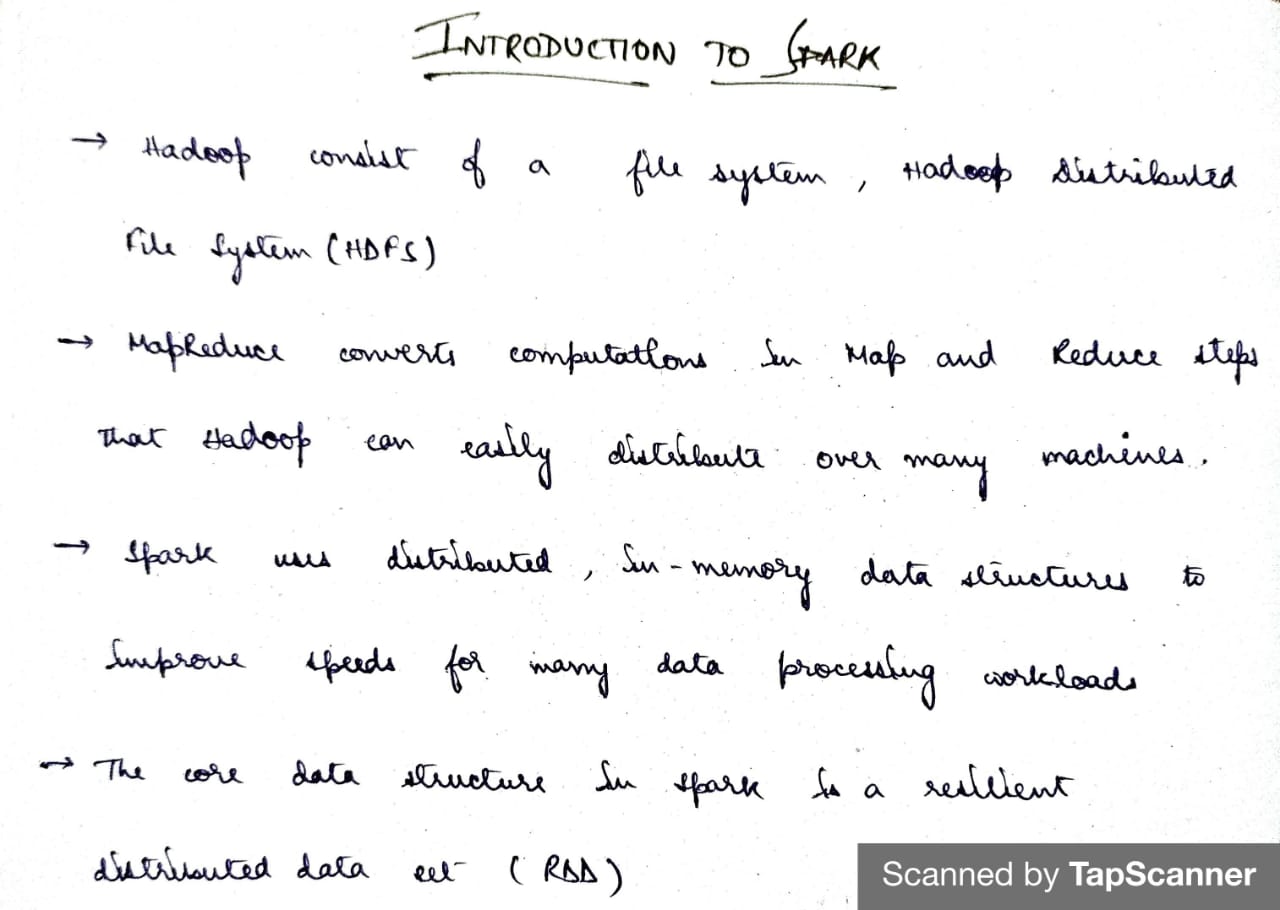 INTRODUCTION TO SPARK
→ Hadoop consist of a file system, Hadoop Distributed
File System (HDFS)
→ MapReduce converts computations in Map and Reduce steps
that Hadoop can easily distribute over many machines.
→ Spark uses distributed, in-memory data structures to
improve speeds for many data processing workloads
→ The core data structure in spark is a resilient
distributed data set (RDD)
Scanned by TapScanner